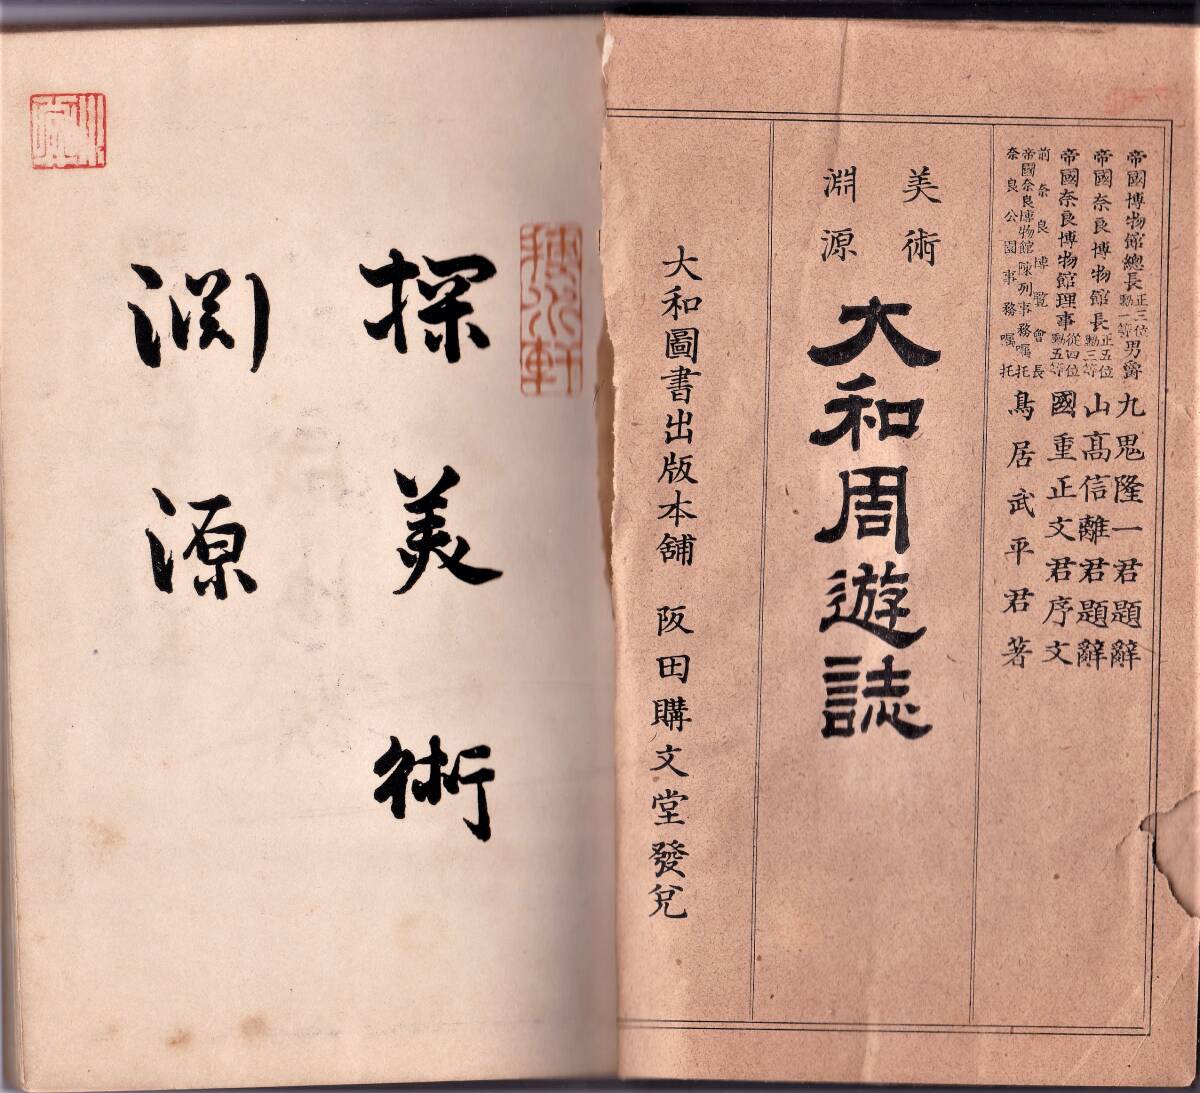 帝國博物館總長正三位勳一等男爵九鬼隆一君題辭
帝國奈良博物館長正五位勳三等山髙信離君題辭
帝國奈良博物館理事從四位勳五等國重正文君序文
前奈良博覽會長
帝國奈良博物館陳列事務嘱托
奈良公園事務嘱托
鳥居武平君著
美術
淵源
大和周遊誌
大和圖書出版本舖 阪田購文堂發兌
探美術
淵源